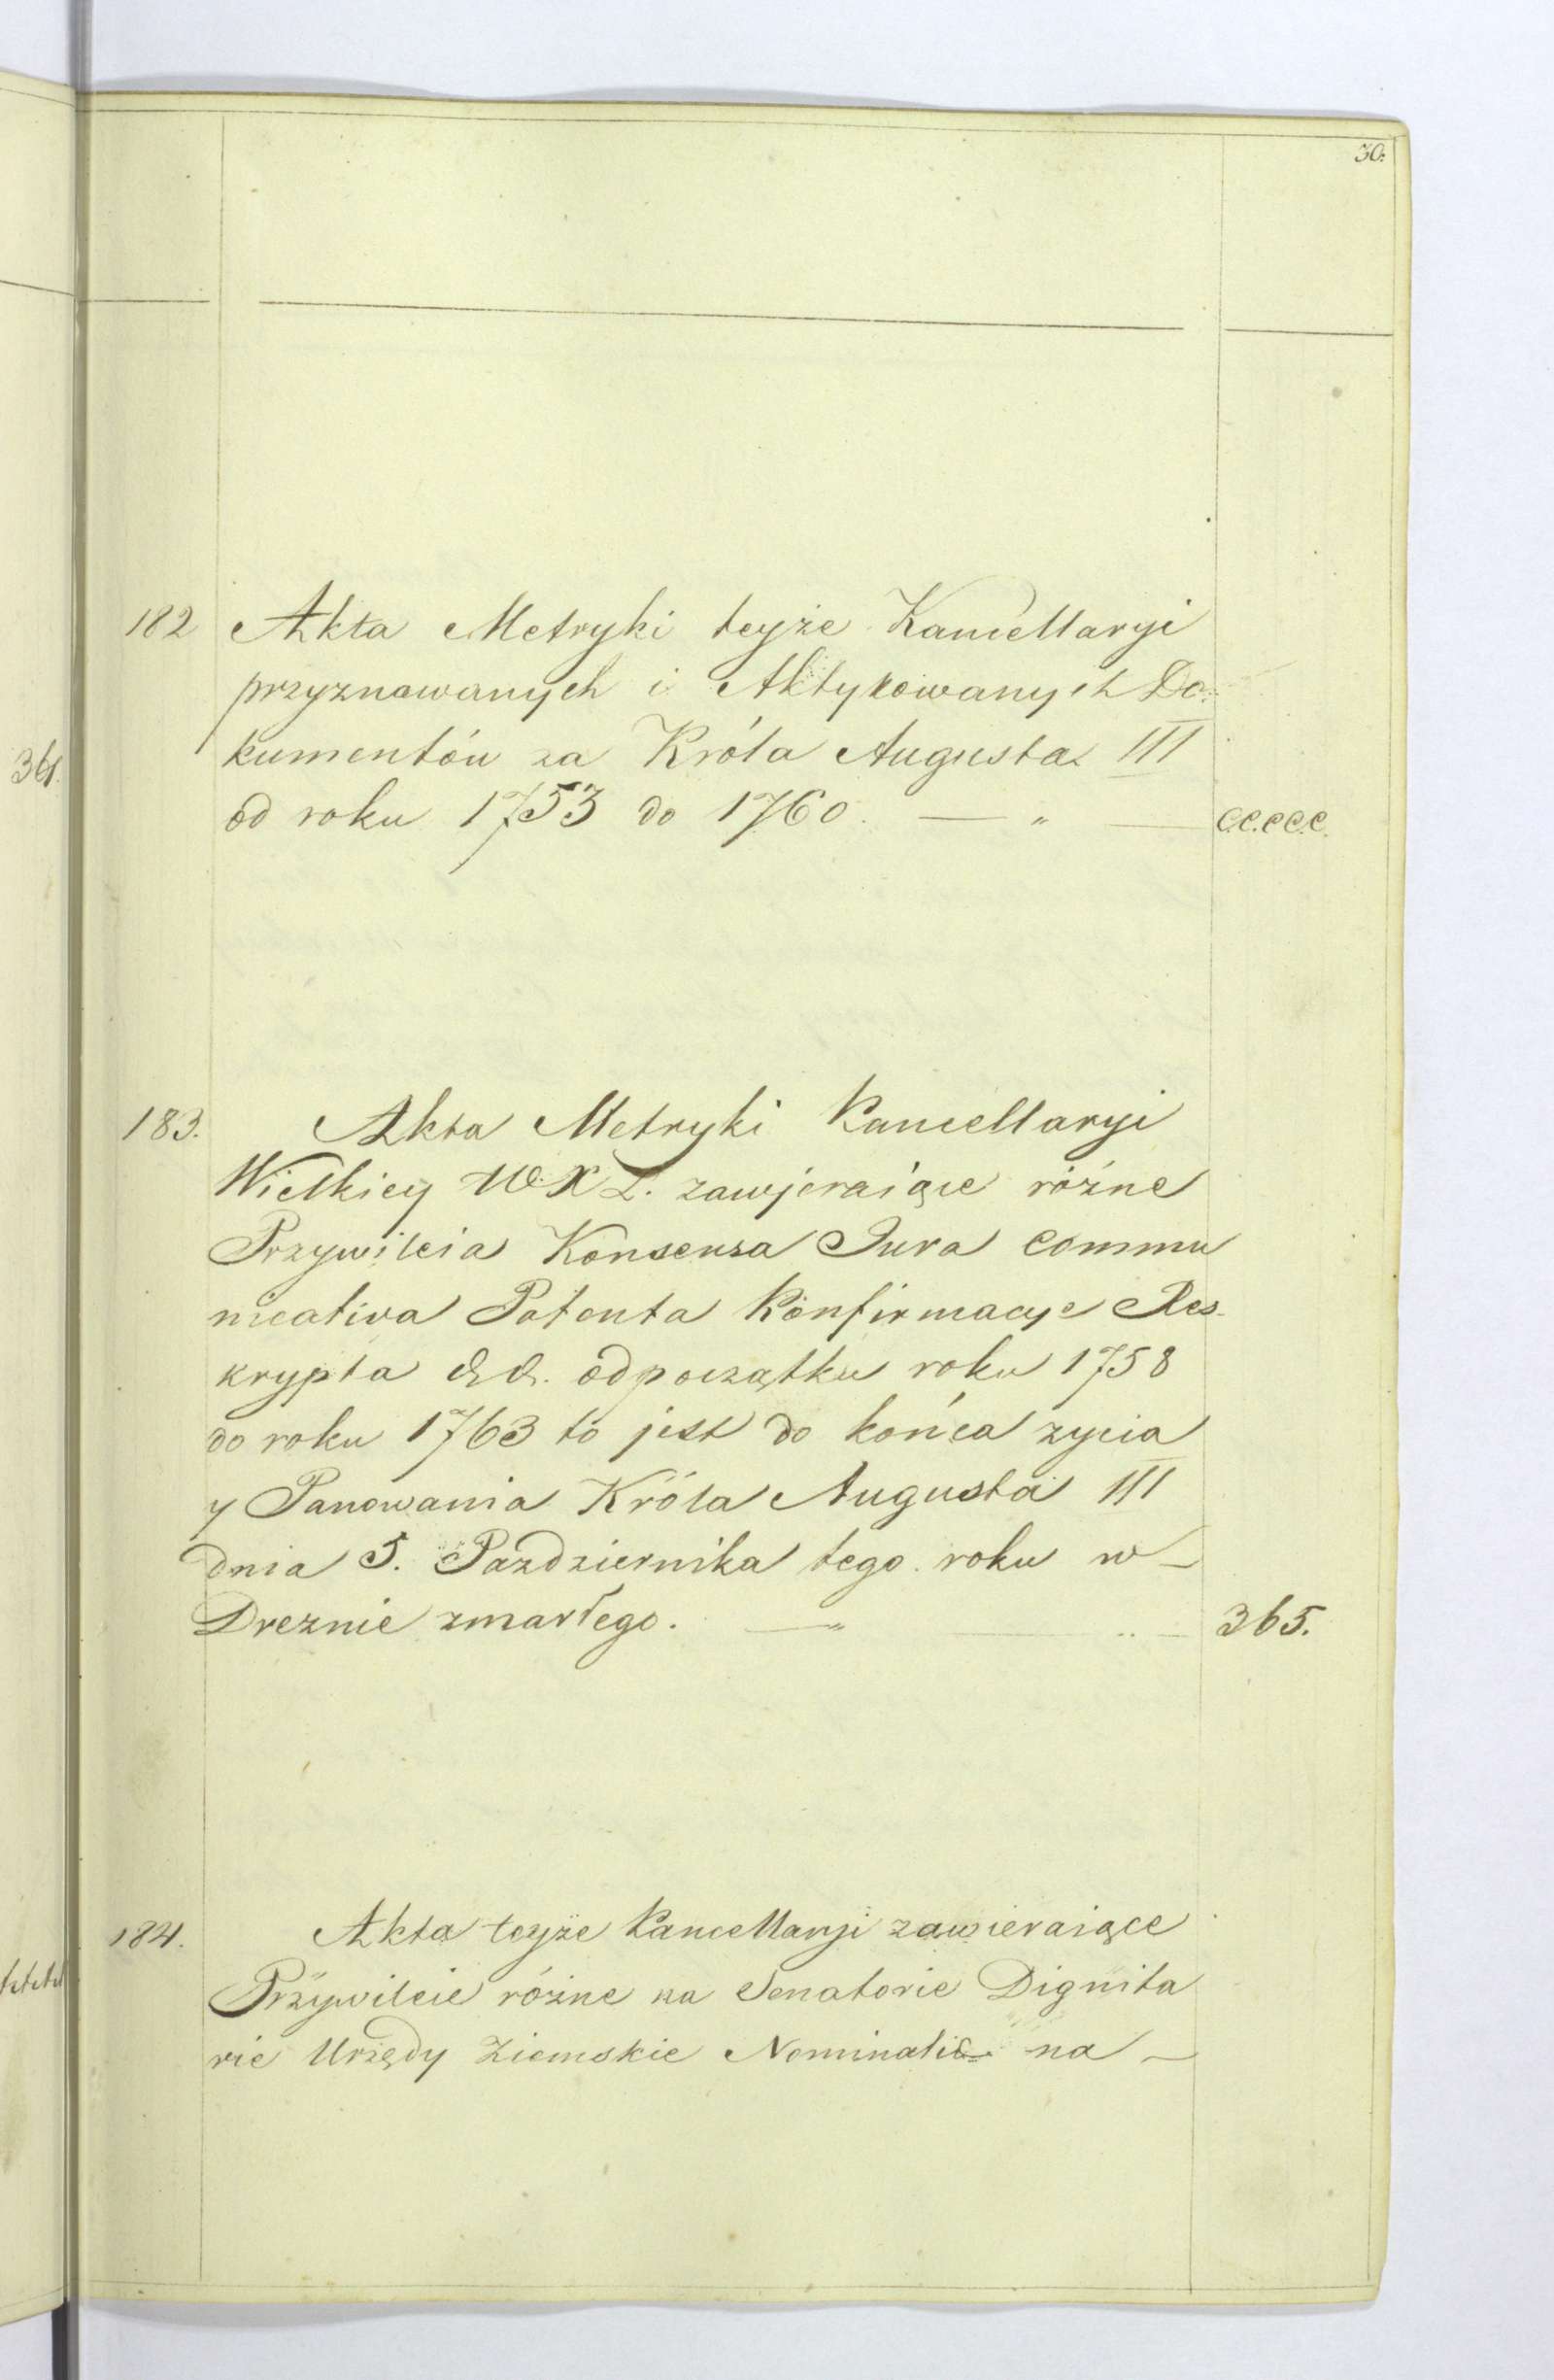 30.
182 Akta Metryki teyże Kancellaryi
przyznawanych i Aktykowanych Do-
kumentów za Króla Augusta III
od roku 1753 do 1760. — " — C.C.C.C.C.
361.
183. Akta Metryki Kancellaryi
Wielkiey W. X L. zawjeraiące różne
Przywileia Konsensa Jura commu
nicativa Patenta Konfirmacye Res-
krypta & &. od początku roku 1758
do roku 1763 to jest do końca zycia
y Panowania Króla Augusta III
dnia 5. Pazdziernika tego roku w
Dreznie zmarłego. — " — 365.
184. Akta teyże Kancellaryi zawieraiące
Przywileie różne na Senatorie Dignita
rie Urzędy Ziemskie Nominatie na